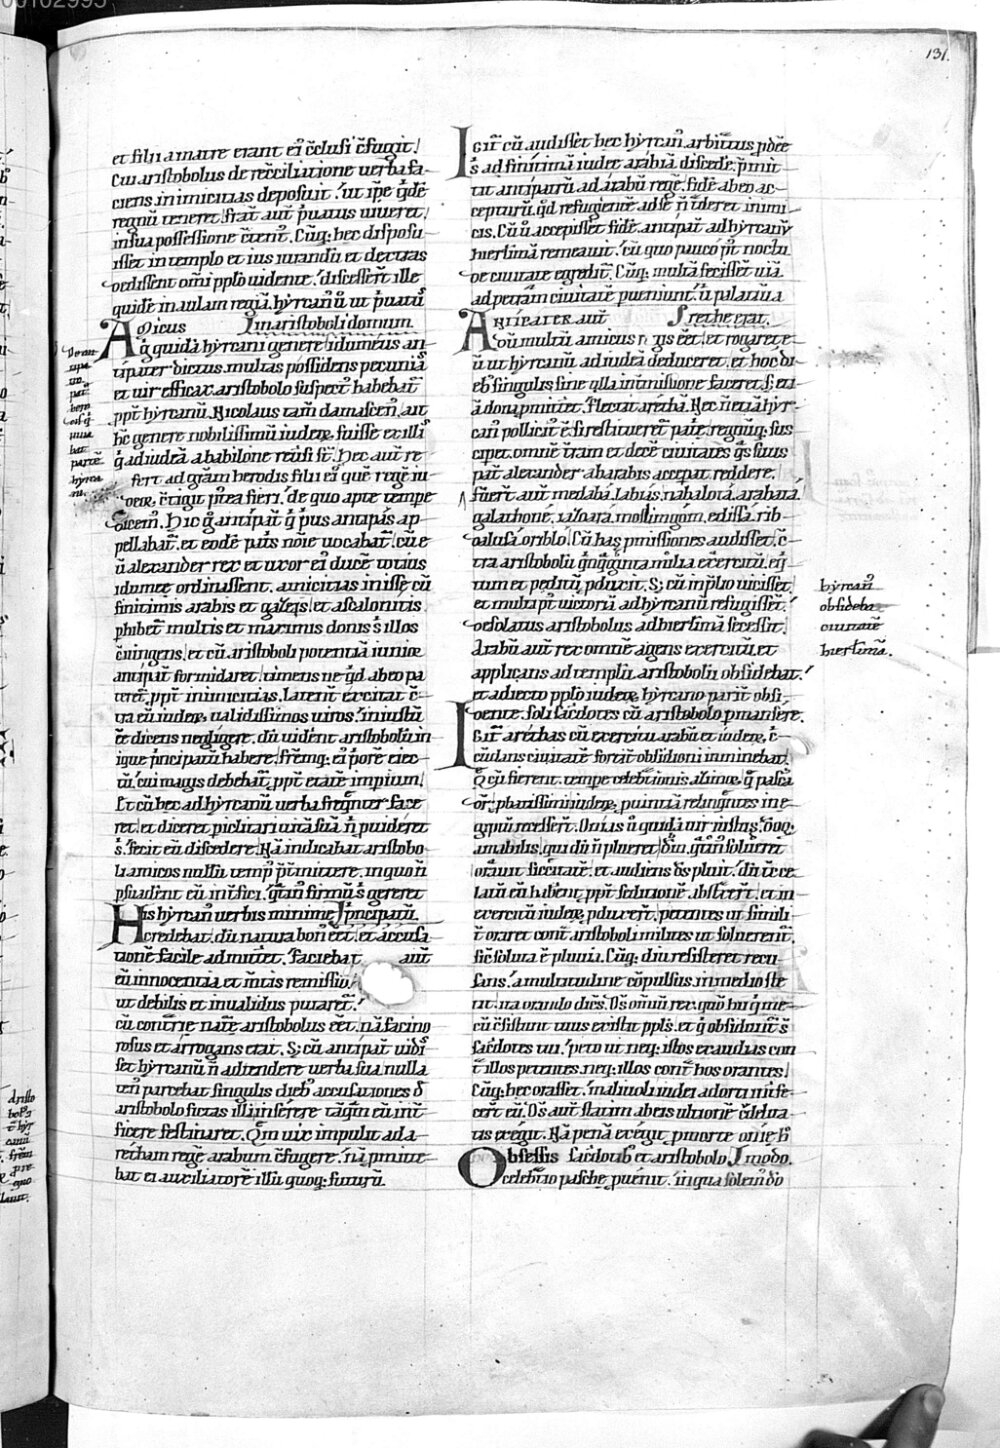 131.
et filii a matre erant ei᷒ c̄clusi c̄fugit!
Cui aristobolus de rec̄ciliatione uerba fa-
ciens inimicitias deposuit. ut ip̄e q̄dē
regnū teneret! frat̄ aut̄ p̄uatus uiueret!
in sua possessione c̄tent᷒. Cūq; hec disposu-
isset in templo et ius iurandū et dextras
dedissent om̄i pplo uidente. discesser̄t ille
quidē in aulam regiā. hyrcan᷒ ū ut p̄uatus
in aristoboli domum.
Amicus
g̊ quidā hyrcani genere idumeus an-
tipater dictus. multas possidens pecunia᷒s
et uir efficax. aristobolo suspect᷒ habebat᷒
ppt̄ hyrcanū. Nicolaus tam̄ damascen᷒ ait
hc̄ genere nobilissimū iudeoꝝ fuisse ex illis
q̇ ad iudeā a babilone reūsi st̄. Hec aut̄ re
fert ad gr̄am herodis filii ei᷒ quē regē iu-
deoꝝ c̄tigit p̄tea fieri. de quo apte tempe
dicem᷒. Hic g̊ antipat̄ q̇ p̄us antipas ap-
pellabat᷒. et eodē pat̄s noīe uocabat᷒! cū e
ū alexander rex et uxor ei᷒ ducē totius
idumee ordinassent. amicitias inisse cū
finitimis arabis et gazeis! et ascalonitis
phibet᷒ multis et maximis donis s̄ illos
c̄iungens! et cū aristoboli potentiā iunior
antipat̄ formidaret! timens ne q̇d ab eo pa
teret᷒ ppt̄ inimicitias. Latent̄ excitat c̄-
tra eū iudeoꝝ ualidissimos uiros. iniustū
ēē dicens negligere. dū uident aristobolū in
ique principatū habere. fr̄emq; ei᷒ p̄ore eiec-
tū! cui magis debebat᷒. ppt̄ etatē impium!
Et cū hec ad hyrcanū uerba freq̄nter face
ret! et diceret piclitari uitā suā n̄ p uideret
s̄. fec̄it eū discedere. Nā indicabat aristobo-
li amicos nullū temp᷒ p̄tmittere. in quo n̄
psuadent eū int̄fici. q̄tin᷒ firmū s̄ gereret
principatū.
His hyrcan᷒ uerbis minime
credebat. dū natura bon᷒ eēt. et accusa-
tionē facile admitteret. faciebat aut̄
eū innocentia et m̄tis remissio
ut debilis et inualidus putaret᷒!
cū contr̄ie nat̄e aristobolus eēt. nā facino
rosus et arrogans erat. S; cū antipat̄ uidis
set hyrcanū n̄ adtendere uerba sua nulla
ten᷒ parcebat singulis dieb᷒ accusationes d̄
aristobolo fictas illi inserere tāq̄m eū int̄-
ficere festinaret. Qm̄ uix impulit ad a-
retham regē arabum c̄fugere. nā pmitte-
bat ei auxiliatorē illū quoq; futurū.
Igit᷒ cū audisset hec hyrcan᷒ arbit̄tus pdēē
s̄ ad finitimā iudeę arabiā discedē. p̄mit-
tit antipatrū ad arabū regē. fidē ab eo ac-
cepturū. q̇d refugientē ad se n̄ t̄deret inimi-
cis. Cū ū accepisset fidē. antipat̄ ad hyrcanū
hierl̄imā remeauit! cū quo pauco p᷒t noctu
de ciuitate egredit᷒. Cūq; multā fecissēt uiā
ad petrām ciuitatē pueniunt. ū palatia
arethe erat.
Antipater aut̄
dū multū amicus regis eēt! et rogaret e-
ū ut hyrcanū ad iudeā deduceret. et hoc di-
eb᷒ singulis sine ulla int̄missione faceret. s; eti-
ā dona pmitteret. flectit arethā. Nec n̄ etiā hyr-
can᷒ pollicit᷒ ē si restitueret᷒ pat̄e. regnūq; sus
ciperet. omnē t̄ram et decē ciuitates q̄s suus
pat̄ alexander ab arabis acceperat reddere.
fuer̄t aut̄ medaba. Labias. nabalota. arabata.
galathone. zazoara. moslimgom. edissa. rib-
dalusa. oriblo. Cū has pmissiones audisset. c̄-
tra aristobolū q̇nq̇ginta milia exercitū. eq̇-
tum et peditū pduxit. S; cū in p̄lio uicisset.
et multi p᷒t uictoriā ad hyrcanū refugissēt!
desolatus aristobolus ad hierl̄imā secessit.
Arabū aut̄ rex omnē agens exercitū et
applicans ad templū aristobolū obsidebat!
et adiecto pplo iudeoꝝ hyrcano parit̄ obsi-
dente. soli sac̄dotes cū aristobolo pmansere.
Igit᷒ arethas cū exercitu arabū et iudeoꝝ c̄-
cludans ciuitatē fortit̄ obsidioni inminebat.
Q᷒ cū fierent. tempe celebrōnis azimoꝝ. q̄ pascā
dr̄. p̄tissimi iudeoꝝ puintiā relinq̄ntes in e-
gyptū recesser̄t. Onias ū quidā uir iustus. dōq;
amabilis. qui dū n̄ plueret! dm̄ q̄tin᷒ solueret
orauit siccitatē. et audiens d̄s pluit. dū ū ce-
latū eū habent. ppt̄ seditionē. abstr̄xert. et in
exercitū iudeoꝝ pduxer̄t. petentes ut simili
t̄ oraret cont̄ aristoboli milites ut soluerent᷒.
sic̄ soluta ē pluuia. Cūq; diu resisteret recu-
sans. a multitudine c̄pulsus in medio ste
tit. ita orando dices. D̄s om̄ium rex. quō hii q̇ me-
cū c̄sistunt tuus existit ppl̄s. et q̇ obsidunt᷒ s̄
sac̄dotes tui! peto ut neq; istos exaudias con
t̄ illos petentes. neq; illos cont̄ hos orantes!
Cūq; hec orasset. maliuoli iudei adorti int̄fe-
cer̄t eū. D̄s aut̄ statim ab eis ultionē c̄delita-
tis exegit. Nā penā exegit. p morte onię h̄
modo.
Obsessis sac̄dotib᷒ et aristobolo.
celeb̄tio pasche puenit. in qua solem᷒ dō
hyrcan᷒
obsideba
ciuitatē
hierl̄imā.